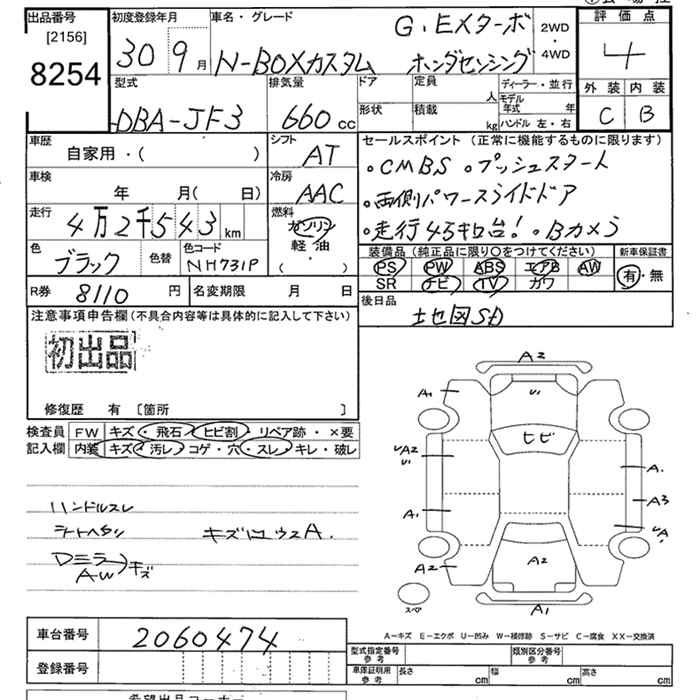 出品番号 [2156] 8254
初度登録年月 30 9月
車名・グレード G、EXターボ 2WD・4WD
N-BOXカスタム ホンダセンシング
評価点 4
外装 内装
C B
型式 DBA-JF3
排気量 660cc
ドア 定員 人
形状 積載 kg
ディーラー・並行
モデル年式 年
ハンドル 左・右
車歴 自家用・( )
シフト AT
車検 年 月( 日)
冷房 AAC
走行 4万2千543km
燃料 ガソリン 軽油 ( )
色 ブラック 色替
色コード NH731P
R券 8110円
名変期限 月 日
セールスポイント (正常に機能するものに限ります)
・CMBS ・プッシュスタート
・両側パワースライドドア
・走行43キロ台! ・Bカメラ
装備品(純正品に限り○をつけてください) 新車保証書
PS PW ABS エアB AW 有・無
SR ナビ TV カワ
後日品 土也図SD
注意事項申告欄(不具合内容等は具体的に記入して下さい)
初出品
修復歴 有 〔箇所 〕
検査員 FW キズ・飛石・ヒビ割・リペア跡・×要
記入欄 内装 キズ・汚レ・コゲ・穴・スレ・キレ・破レ
ハンドルスレ
シートヘタリ
Dミラー AW キズ
A2
A1 U1
ヒビ
UA2 U1
A1
A1
A3
UA1
A2 A2
A1
スペア
A−キズ E−エクボ U−凹み W−補修跡 S−サビ C−腐食 XX−交換済
車台番号 2060474
登録番号
型式指定番号 参考 類別区分番号 参考
車庫証明用 参考 長さ cm 幅 cm 高さ cm
希望出品コーナー